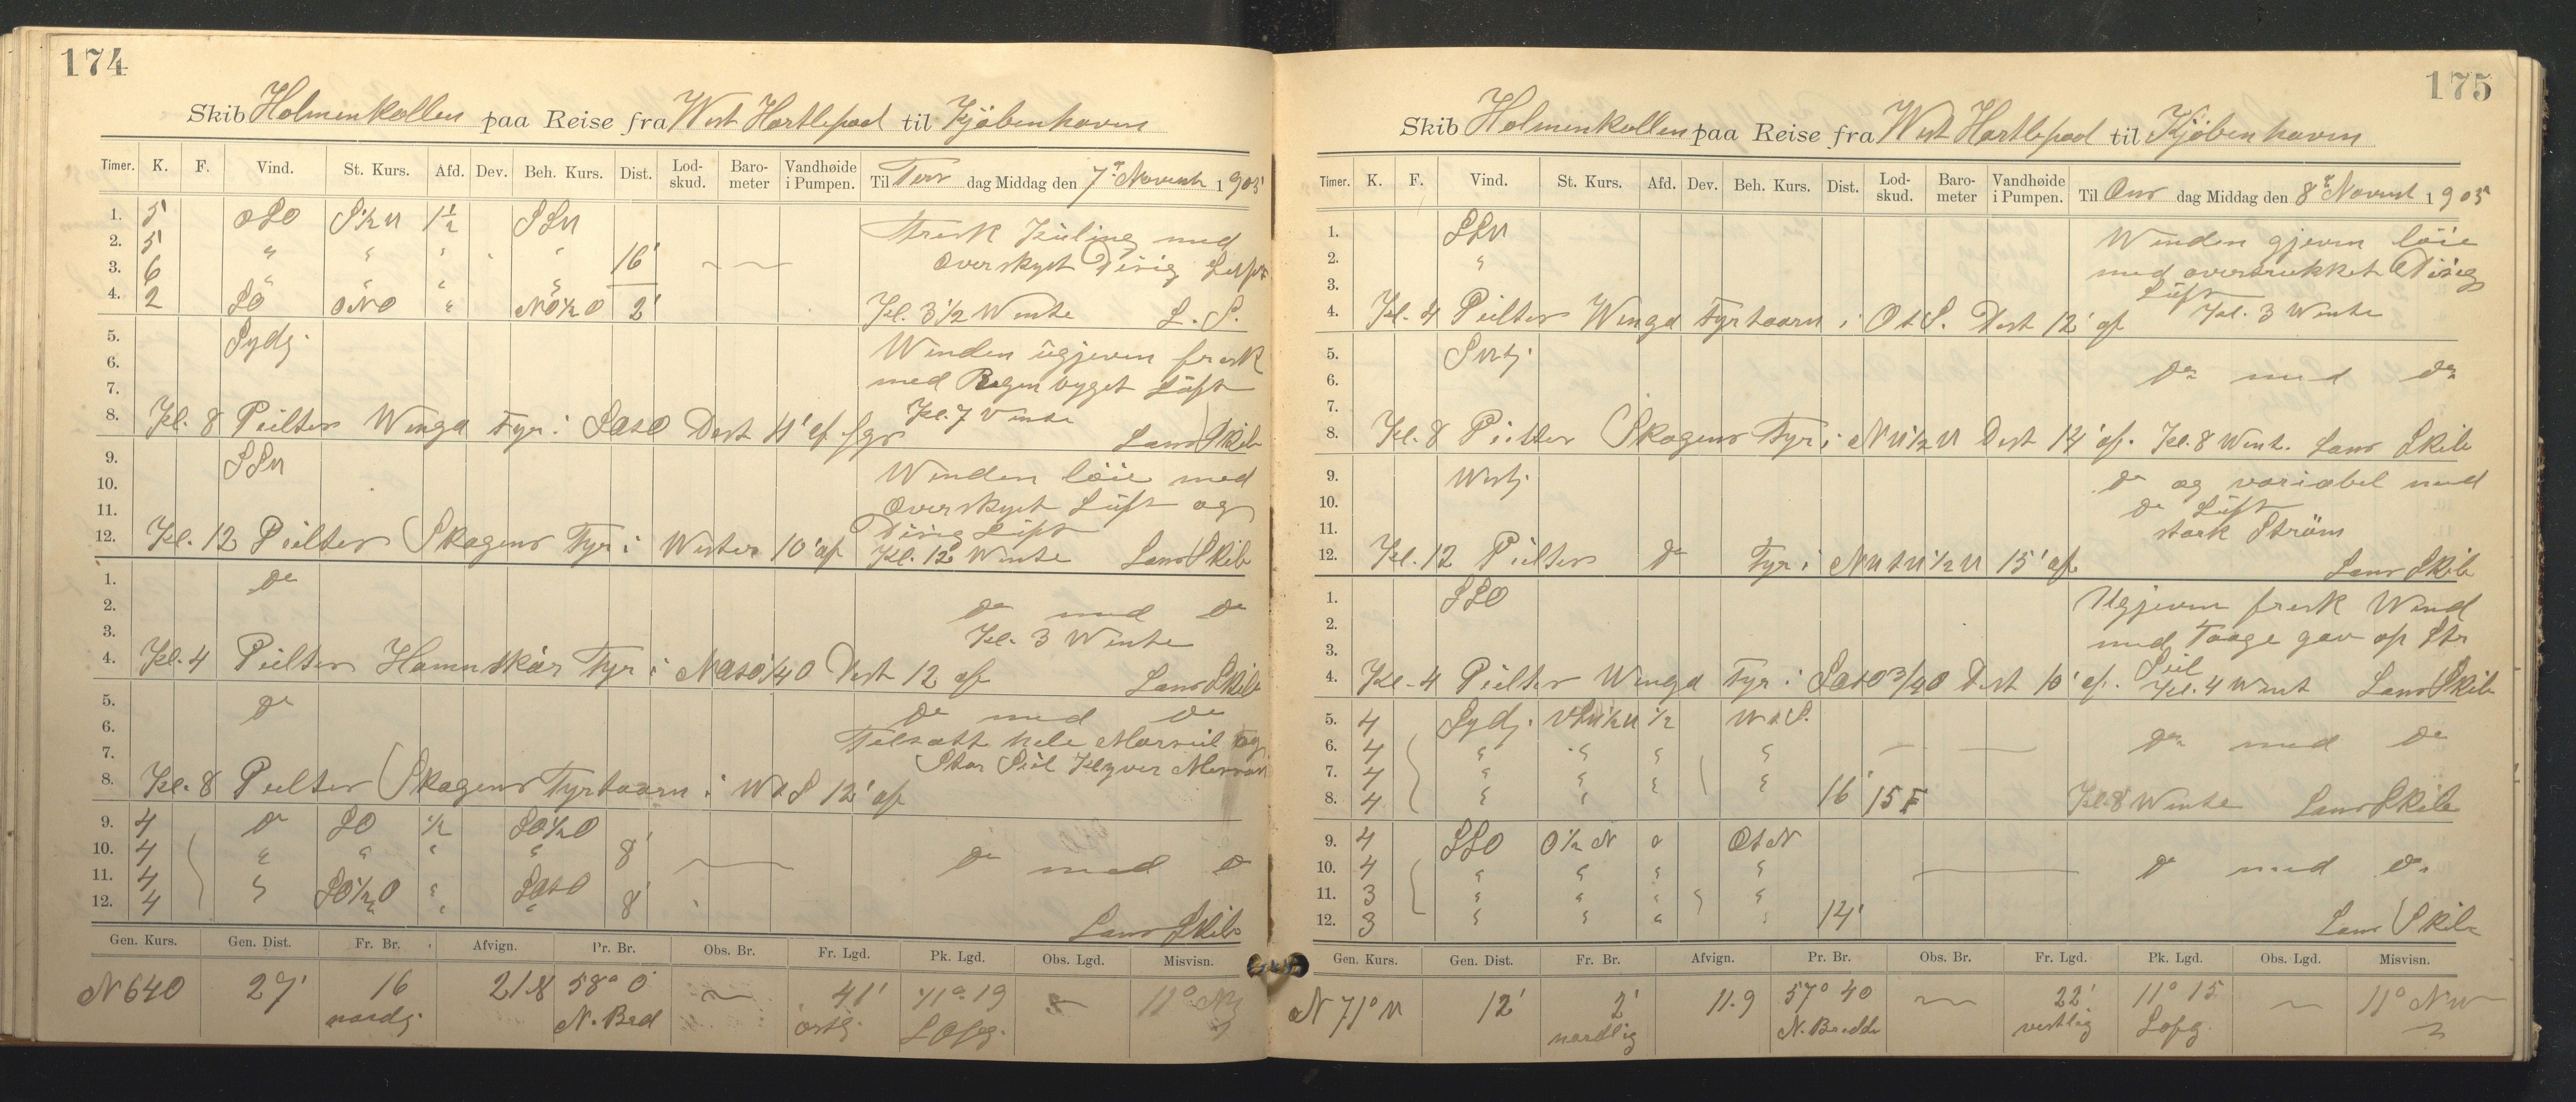 174
Skib Holmenkollen paa Reise fra West Hartlepool til Kjöbenhavn
Timer. K. F. Vind. St. Kurs. Afd. Dev. Beh. Kurs. Dist. Lod-skud. Baro-meter Vandhøide i Pumpen. Til Tirs dag Middag den 7de Novemb 1905
1. 5 OSO S½W 1½ SSW Frisk Kuling med
2. 5 " " " " " 16' Overskyet Disig Luft
3. 6 " " " "
4. 2 SO ONO " NO½O 2' Kl. 3½ Wendte L. S.
5. Sydl. Winden ugjevn frisk
6. med Regn byget Luft
7. Kl. 7 Vendte
8. Kl. 8 Peiltes Winga Fyr i SOtO Dist 11' af Lans Skib
9. SSW Winden löie med
10. Overskyet Luft og
11. Disig Luft
12. Kl. 12 Peiltes Skagens Fyr i Wester 10' af Kl. 12 Wendte Lans Skib
1. Do
2. Do med Do
3. Kl. 3 Wendte
4. Kl. 4 Peiltes Hamnskär Fyr i NOtO¼O Dist 12 af Lans Skib
5. Do Do med Do
6. Tilsatt hele Mersseil og
7. Stor Seil Klyver
8. Kl. 8 Peiltes Skagens Fyrtaarn i WtS 12' af
9. 4 Do SO ½ SO½O
10. 4 " " " " 8' Do med Do
11. 4 " SO½O " SOtO
12. 4 " " " 8' Lans Skib
Gen. Kurs. Gen. Dist. Fr. Br. Afvign. Pr. Br. Obs. Br. Fr. Lgd. Pk. Lgd. Obs. Lgd. Misvisn.
N 64 O 27' 16 21.8 58° 0' 41' 11° 19 11° NW
nordg. N. Bred ostg. Lopg.
175
Skib Holmenkollen paa Reise fra West Hartlepool til Kjöbenhavn
Timer. K. F. Vind. St. Kurs. Afd. Dev. Beh. Kurs. Dist. Lod-skud. Baro-meter Vandhøide i Pumpen. Til Ons dag Middag den 8de Novemb 1905
1. SSW Winden gjevn löie
2. " med overtrukket Disig
3. Luft Kl. 3 Wendte
4. Kl. 4 Peiltes Winga Fyrtaarn i OtS. Dist 12' af
5. SWtj.
6. Do med Do
7.
8. Kl. 8 Peiltes Skagens Fyr i NW½W Dist 14' af. Kl. 8 Wendt. Lans Skib
9. Westj. Do og variabel med
10. Do Luft
11. stærk Ström
12. Kl. 12 Peiltes Do Fyr i NWtW½W 15' af. Lans Skib
1. SSO Ugjevn frisk Wind
2. med Taage gav op Stor
3. Seil
4. Kl. 4 Peiltes Winga Fyr i SOtO¾O Dist 10' af. Kl. 4 Wendt Lans Skib
5. 4 Sydj. ½ WtS.
6. 4 " " " " Do med Do
7. 4 " " " "
8. 4 " " " 16' 15 F Kl. 8 Wendte Lans Skib
9. 4 SSO O½N " OtN
10. 4 " " " " Do med Do
11. 3 " " " "
12. 3 " " " " 14' Lans Skib
Gen. Kurs. Gen. Dist. Fr. Br. Afvign. Pr. Br. Obs. Br. Fr. Lgd. Pk. Lgd. Obs. Lgd. Misvisn.
N 71° W 12' 2' 11.9 57° 40 22' 11° 15 11° NW
nordlig N. Bredde vestlig Lopg.